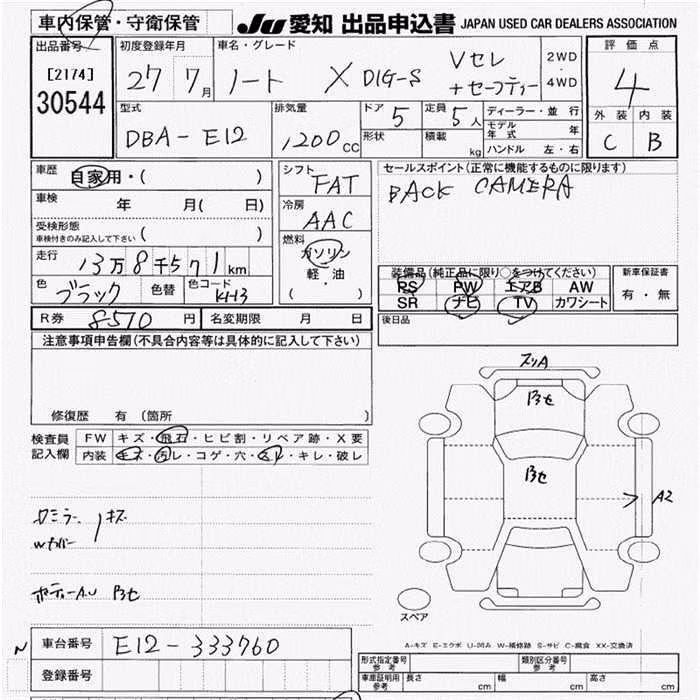 車内保管・守衛保管
JU 愛知 出品申込書 JAPAN USED CAR DEALERS ASSOCIATION
出品番号
[2174]
30544
初度登録年月
27 7月
車名・グレード
ノート X DIG-S Vセレ
+セーフティー
2WD
・
4WD
評価点
4
外装 内装
C B
型式
DBA-E12
排気量
1200 cc
ドア 5
形状
定員 5人
積載 kg
ディーラー・並行
モデル年式 年
ハンドル 左・右
車歴
自家用・( )
車検 年 月( 日)
受検形態
車検付きのみ記入して下さい ( )
走行
13万8千571km
色 ブラック 色替 色コード KH3
シフト
FAT
冷房
AAC
燃料
ガソリン
軽・油
( )
セールスポイント(正常に機能するものに限ります)
BACK CAMERA
装備品(純正品に限り○をつけてください)
PS PW エアB AW
SR ナビ TV カワシート
新車保証書
有・無
後日品
R券 8510円 名変期限 月 日
注意事項申告欄(不具合内容等は具体的に記入して下さい)
修復歴 有(箇所 )
検査員記入欄
FW キズ・飛石・ヒビ割・リペア跡・X要
内装 キズ・汚レ・コゲ・穴・スレ・キレ・破レ
ロミラー
Wカバー
キズ
ボディーA.U Bセ
スリA
Bセ
Bセ
A2
スペア
A-キズ E-エクボ U-凹み W-補修跡 S-サビ C-腐食 XX-交換済
N
車台番号 E12-333760
登録番号
形式指定番号 参考
類別区分番号 参考
車庫証明用 参考 長さ cm 幅 cm 高さ cm